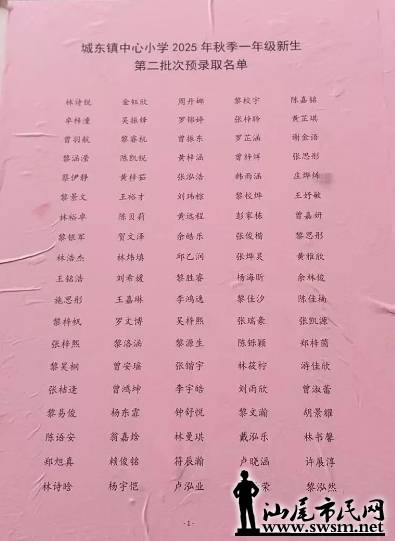 城东镇中心小学2025年秋季一年级新生
第二批次预录取名单
林诗锐 金钰欣 周丹娜 黎校宇 陈嘉铭
卓梓潼 吴振锋 罗锦婷 张梓聆 黄芷琪
曾羽航 黎睿杭 曾振东 罗芷涵 谢金语
黎涵滢 陈凯锐 黄梓涵 张思彤
黎伊静 黄梓茹 张泓浩 韩雨涵
黎景文 王裕才 刘玮棕 黎校烨 王妤敏
林裕卓 陈贝莉 黄远程 彭家栋 曾嘉妍
黎银军 贺文泽 余皓乐 张俊楷 黎思彤
林浩杰 林炜填 邱乙润 张烨炅 黄雅欣
王铭浩 刘希媛 黎胜睿 杨海昕 余林俊
施思彤 王嘉琳 李鸿逸 黎佳汐 陈佳楠
黎梓帆 罗文博 吴梓熙 张瑞豪 张凯源
张梓熙 黎洛涵 黎源生 陈铄颖 郑梓茼
黎昊桐 曾安瑶 张锴宇 林莜柠 游佳欣
张桔逢 曾鸿坤 李宇皓 刘雨欣 曾淑蕾
黎易俊 杨东霖 钟舒悦 黎文瀚 胡景耀
陈语安 翁嘉焓 林曼琪 戴泓乐 林书馨
郑旭真 赖俊铭 符辰瀚 卢晓涵 许展淳
林诗晗 杨宇恺 卢泓业 荣 黎泓然
- 1 -
汕尾市民网
www.swsm.net